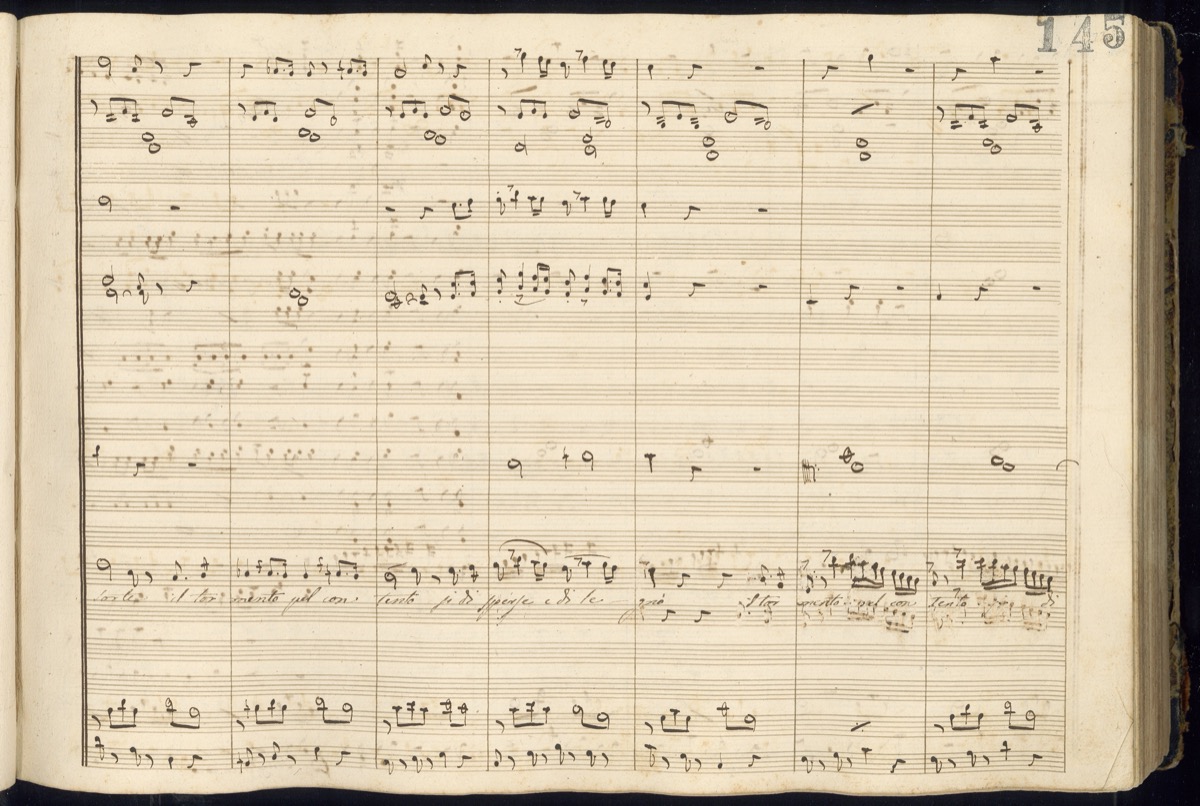 145
sorte il tor mento nel con tento si di sperge e di le gnò Il tor mento nel con tento si di